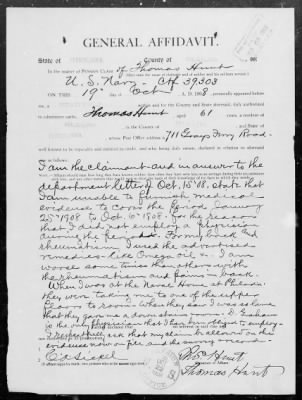 GENERAL AFFIDAVIT.
State of
County of
In the matter of PENSION CLAIM of Thomas Hunt
U.S. Navy - Ctf 39303
ON THIS 19" day of Oct A. D. 1908, personally appeared before
me, a in and for the County and State aforesaid, duly authorized
to administer oaths, Thomas Hunt aged 61 years, a resident of
in the County of
and State of whose Post Office address is 711 Grays Ferry Road
well known to be reputable and entitled to credit, and who, being duly sworn, declared in relation to aforesaid
I am the claimant and in answer to the
department letter of Oct. 15"08. state that
I am unable to furnish medical
evidence to cover the period January
25"1908 to Oct 10"1908. for the reason
that I did not employ a physician
during the period. For my back and
rheumatism I used the advertised
remedies - like Omega oil - I am
worse some times than others with
the rheumatism and pains in back.
When I was at the Naval Home at Philada.
they were taking me to one of the upper
floors to room. When they saw I was so lame
that they gave me a down stairs room. Dr. Graham
is the only physician that I have
I respectfully ask that my claim be allowed on the
evidence now on file and the record
Thomas Hunt